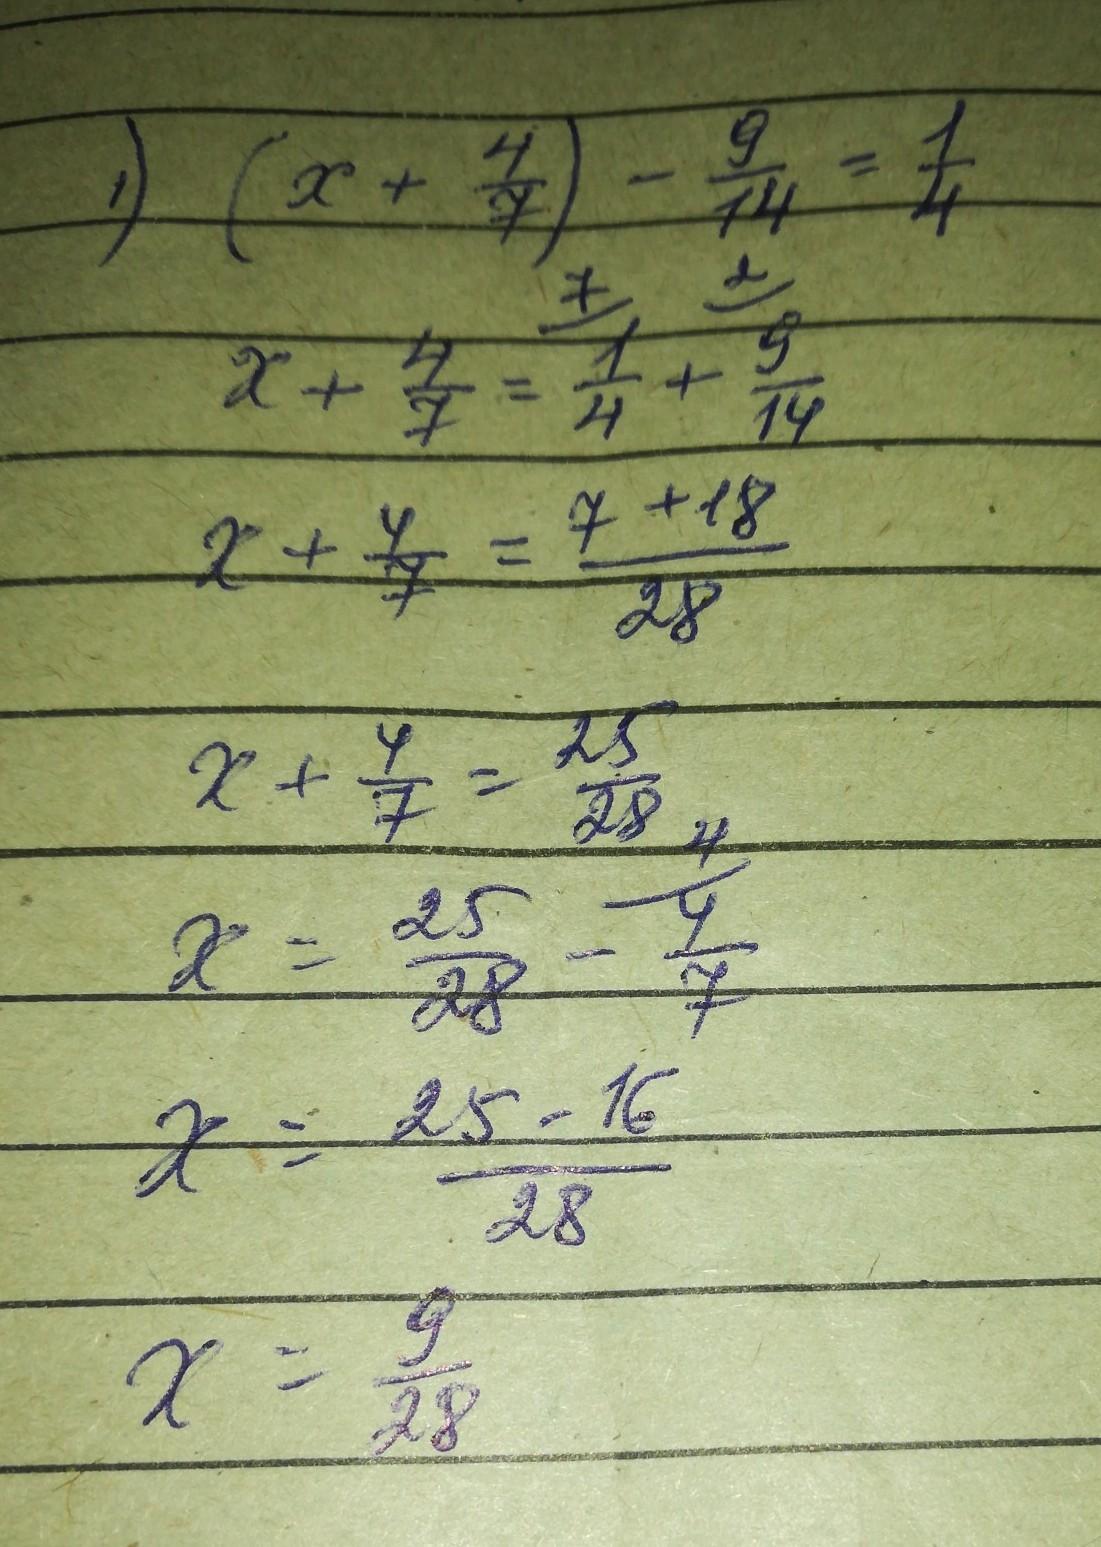 1) (x + 4/7) - 9/14 = 1/4
7 2
x + 4/7 = 1/4 + 9/14
x + 4/7 = (7 + 18)/28
x + 4/7 = 25/28
4
x = 25/28 - 4/7
x = (25 - 16)/28
x = 9/28